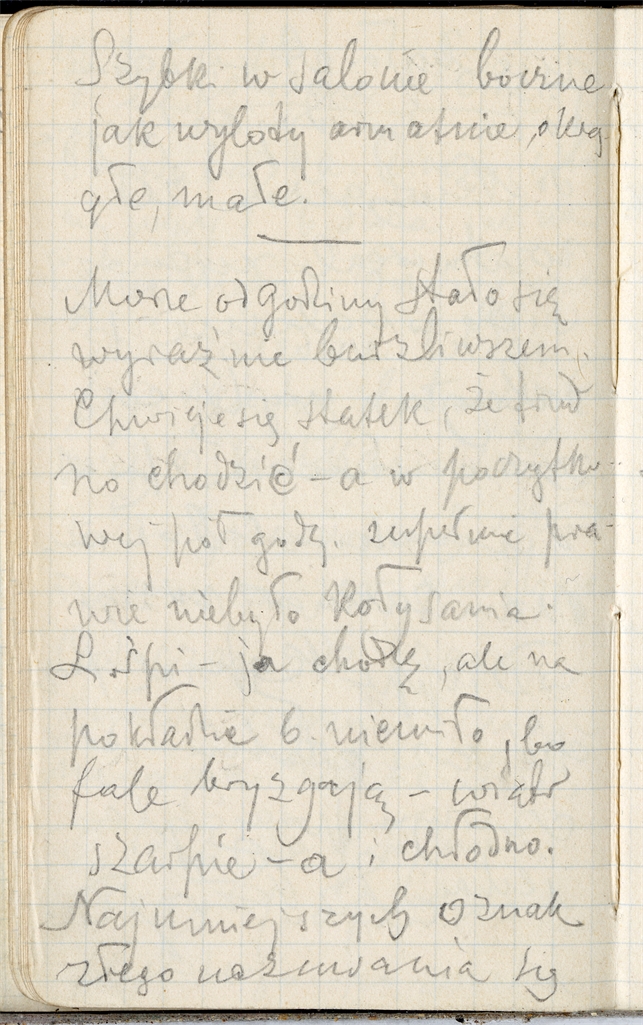 Szybki w salonie boczne
jak wyloty armatnie, okrą
głe, małe.
Morze od godziny stało się
wyraźnie burzliwszem.
Chwieje się statek, że trud
no chodzić - a w początko
wej pół godz. zupełnie pra-
wie niebyło kołysania.
L. śpi - ja chodzę, ale na
pokładzie b. niemiło, bo
fale bryzgają - wiatr
szarpie - a i chłodno.
Najmniejszych oznak
złego się